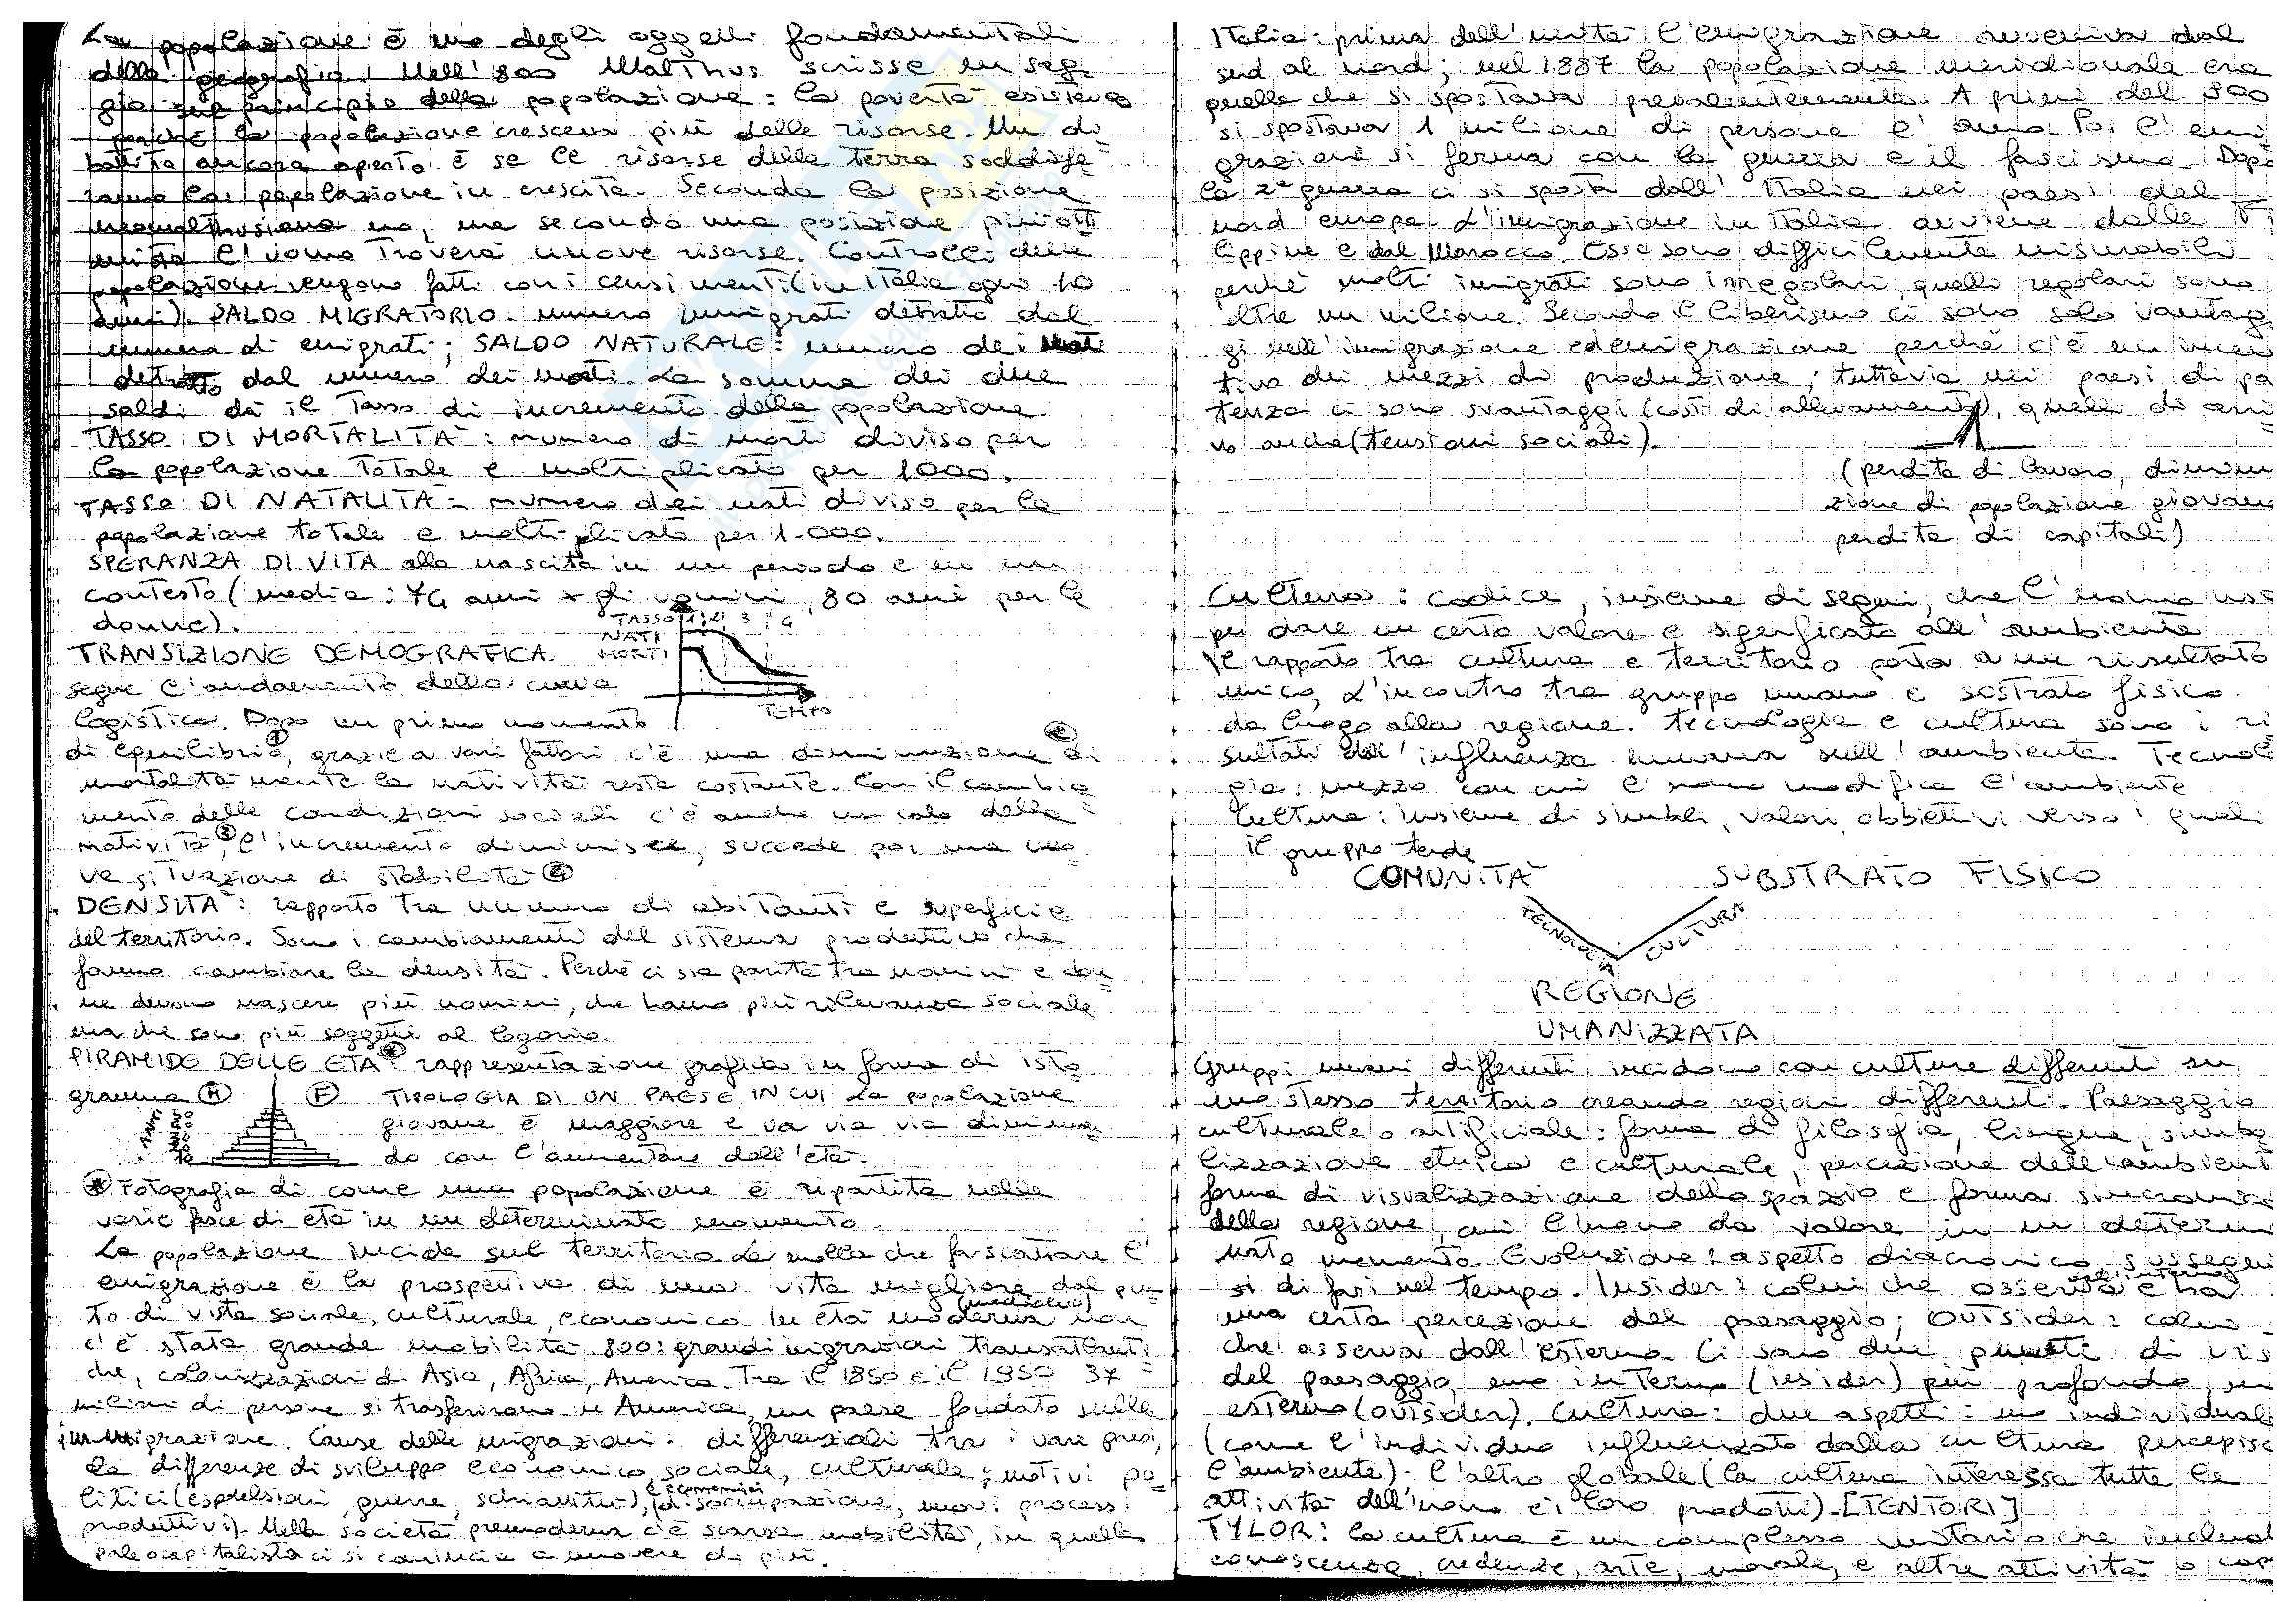 La popolazione è uno degli oggetti fondamentali
della geografia. Nell'800 Malthus scrisse un sag
gio sul principio della popolazione: la povertà esisteva
perché la popolazione cresceva più delle risorse. Un di
battito ancora aperto è se le risorse della terra soddisfe
ranno la popolazione in crescita. Secondo la posizione
neomalthusiana no, ma secondo una posizione più otti
mista l'uomo troverà nuove risorse. Controlli della
popolazione vengono fatti con i censimenti (in Italia ogni 10
anni). SALDO MIGRATORIO: numero immigrati detratto dal
numero di emigrati; SALDO NATURALE: numero dei nati
detratto dal numero dei morti. La somma dei due
saldi dà il tasso di incremento della popolazione
TASSO DI MORTALITÀ: numero di morti diviso per
la popolazione totale e moltiplicato per 1000.
TASSO DI NATALITÀ= numero dei nati diviso per la
popolazione totale e moltiplicato per 1.000.
SPERANZA DI VITA alla nascita in un periodo e in un
contesto (media: 74 anni x gli uomini, 80 anni per le
donne).
TASSO 1 2 3 4
NATI
MORTI
TEMPO
TRANSIZIONE DEMOGRAFICA
segue l'andamento della curva
logistica. Dopo un primo momento
di equilibrio ①, grazie a vari fattori c'è una diminuzione di ②
mortalità mentre la natività resta costante. Con il cambia
mento delle condizioni sociali c'è anche un calo della
natività ③, l'incremento diminuisce, succede poi una nuo
va situazione di stabilità ④
DENSITÀ: rapporto tra numero di abitanti e superficie
del territorio. Sono i cambiamenti del sistema produttivo che
fanno cambiare la densità. Perché ci sia parità tra uomini e don
ne devono nascere più uomini, che hanno più rilevanza sociale
ma che sono più soggetti al logorio.
PIRAMIDE DELLE ETÀ * rappresentazione grafica in forma di isto
gramma Ⓜ Ⓕ TIPOLOGIA DI UN PAESE IN CUI la popolazione
giovane è maggiore e va via via diminuen
do con l'aumentare dell'età.
ANNI 50
10
* Fotografia di come una popolazione è ripartita nelle
varie fasce di età in un determinato momento
La popolazione incide sul territorio. La molla che fa scattare l'
emigrazione è la prospettiva di una vita migliore dal pun
to di vista sociale, culturale, economico. In età moderna (medioevo) non
c'è stata grande mobilità. 800: grandi migrazioni transatlanti
che, colonizzazioni di Asia, Africa, America. Tra il 1850 e il 1950 37
milioni di persone si trasferirono in America, un paese fondato sulla
immigrazione. Cause delle migrazioni: differenziali tra i vari paesi,
da differenze di sviluppo economico, sociale, culturale; motivi po
litici (espulsioni, guerre, schiavitù), e economici (disoccupazione, nuovi processi
produttivi). Nelle società premoderna c'è scarsa mobilità, in quella
paleocapitalista ci si comincia a muovere di più.
Italia: prima dell'unità l'emigrazione avveniva dal
sud al nord; nel 1887 la popolazione meridionale era
quella che si spostava prevalentemente. A primi del 900
si spostava 1 milione di persone l'anno. Poi l'emi
grazione si ferma con la guerra e il fascismo. Dopo
la 2ª guerra ci si sposta dall'Italia nei paesi del
nord europa. L'immigrazione in Italia avviene dalle Fi
lippine e dal Marocco. Esse sono difficilmente misurabili
perché molti imigrati sono irregolari, quelli regolari sono
oltre un milione. Secondo il liberismo ci sono solo vantag
gi nell'imigrazione ed emigrazione perché c'è un incen
tivo dei mezzi di produzione; tuttavia nei paesi di pa
tenza ci sono svantaggi (costi di allevamento), quelli di arri
vo anche (tensioni sociali).
(perdita di lavoro, diminu
zione di popolazione giovane
perdita di capitali)
Cultura: codice, insieme di segni, che l'uomo usa
per dare un certo valore e significato all'ambiente
Il rapporto tra cultura e territorio porta a un risultato
unico, L'incontro tra gruppo umano e sostrato fisico
da luogo alla regione. Tecnologia e cultura sono i ri
sultati dell'influenza umana sull'ambiente. Tecnolo
gia: mezzo con cui l'uomo modifica l'ambiente
Cultura: insieme di simboli, valori, obbiettivi verso i quali
il gruppo tende
COMUNITÀ SUBSTRATO FISICO
TECNOLOGIA CULTURA
REGIONE
UMANIZZATA
Gruppi umani differenti incidono con culture differenti su
uno stesso territorio creando regioni differenti. Paesaggio
culturale o artificiale: forma di filosofia, lingua, simbo
lizzazione etnica e culturale, percezione dell'ambiente
forma di visualizzazione dello spazio e forma sincronica
della regione, cui l'uomo da valore in un determi
nato momento. Evoluzione: aspetto diacronico, sussegui
si di fasi nel tempo. Insider: colui che osserva dall'interno e ha
una certa percezione del paesaggio; OUTSIDER: colui
che osserva dall'esterno. Ci sono due punti di vis
del paesaggio, uno interno (insider) più profondo, un
esterno (outsider). Cultura: due aspetti: uno individuale
(come l'individuo influenzato dalla cultura percepisc
l'ambiente). l'altro globale (la cultura interessa tutte le
attività dell'uomo e i loro prodotti)-[TENTORI]
TYLOR: la cultura è un complesso unitario che includ
conoscenza, credenze, arte, morale, e altre attività o cap